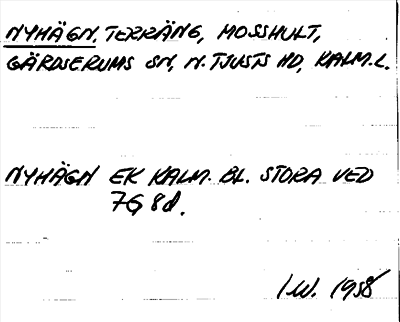 NYHÄGN, TERRÄNG, MOSSHULT,
GÄRDSERUMS SN, N. TJUSTS HD, KALM. L.
NYHÄGN EK KALM. BL. STORA VED
7G 8d.
I.W. 1958